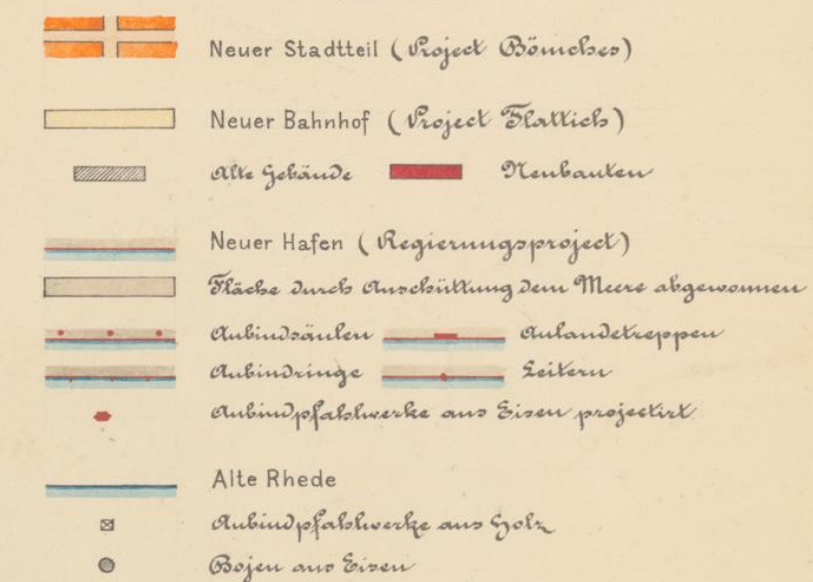 Neuer Stadtteil (Project Bömches)
Neuer Bahnhof (Project Flattich)
Alte Gebäude Neubauten
Neuer Hafen (Regierungsproject)
Fläche durch Anschüttung dem Meere abgewonnen
Anbindsäulen Anlandetreppen
Anbindringe Leitern
Anbindpfahlwerke aus Eisen projectirt
Alte Rhede
Anbindpfahlwerke aus Holz
Bojen aus Eisen